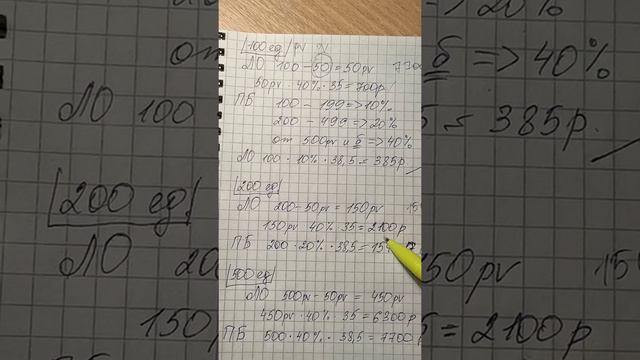 100 ед PV
ЛО 100 - 50 = 50 pv
50pv · 40% · 35 = 700р
ПБ 100 - 199 => 10%
200 - 499 => 20%
от 500pv и б => 40%
ЛО 100 · 10% · 38,5 = 385р
200 ед
ЛО 200 - 50pv = 150pv
150pv 40% 35 = 2100р
ПБ 200 · 20% · 38,5 = 15
500 ед
ЛО 500pv - 50pv = 450pv
450pv · 40% · 35 = 6300р
ПБ 500 · 40% · 38,5 = 7700р